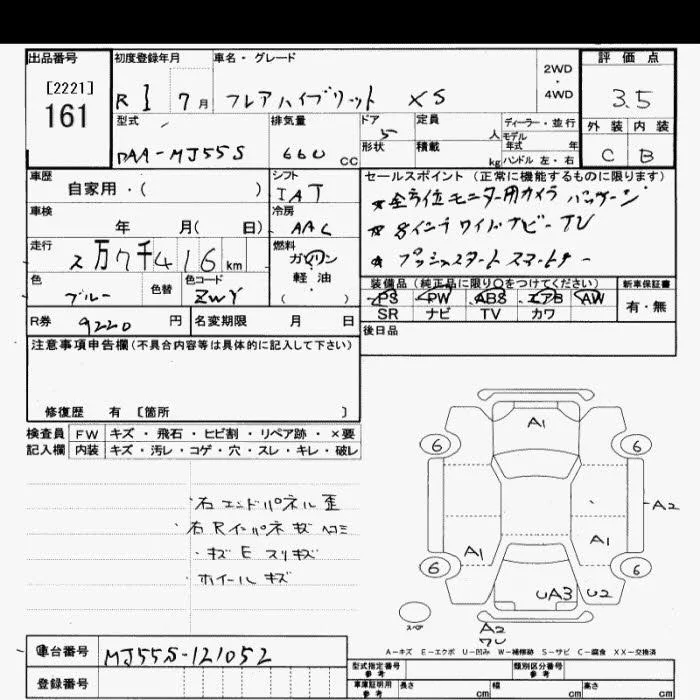 出品番号
[2221]
161
初度登録年月
R 1 7月
車名・グレード
フレアハイブリット XS
2WD
・
4WD
評価点
3.5
外装 内装
C B
型式
DAA-MJ55S
排気量
660 cc
ドア
5
形状
定員
人
積載
kg
ディーラー・並行
モデル
年式 年
ハンドル 左・右
車歴
自家用・( )
シフト
IAT
車検
年 月( 日)
冷房
AAC
走行
2万7千416km
燃料
ガソリン
軽油
( )
色
ブルー
色替
色コード
ZWY
セールスポイント(正常に機能するものに限ります)
★全方位モニター用カメラ パッケージ
★8インチワイドナビーTV
★プッシュスタート スマートキー
装備品(純正品に限り○をつけてください)
PS PW ABS エアB AW
SR ナビ TV カワ
新車保証書
有・無
後日品
R券
9220 円
名変期限 月 日
注意事項申告欄(不具合内容等は具体的に記入して下さい)
修復歴 有 〔箇所 〕
検査員
記入欄
FW キズ・飛石・ヒビ割・リペア跡・×要
内装 キズ・汚レ・コゲ・穴・スレ・キレ・破レ
・右エンドパネル歪
・右Rインパネ キズ ヘコミ
・キズ E スリキズ
・ホイールキズ
A1
6
6
A2
A1
A1
6
6
UA3
U2
スペア
A2
A-キズ E-エクボ U-凹み W-補修跡 S-サビ C-腐食 XX-交換済
車台番号
MJ55S-121052
登録番号
型式指定番号
参考
類別区分番号
参考
車庫証明用
参考
長さ cm
幅 cm
高さ cm